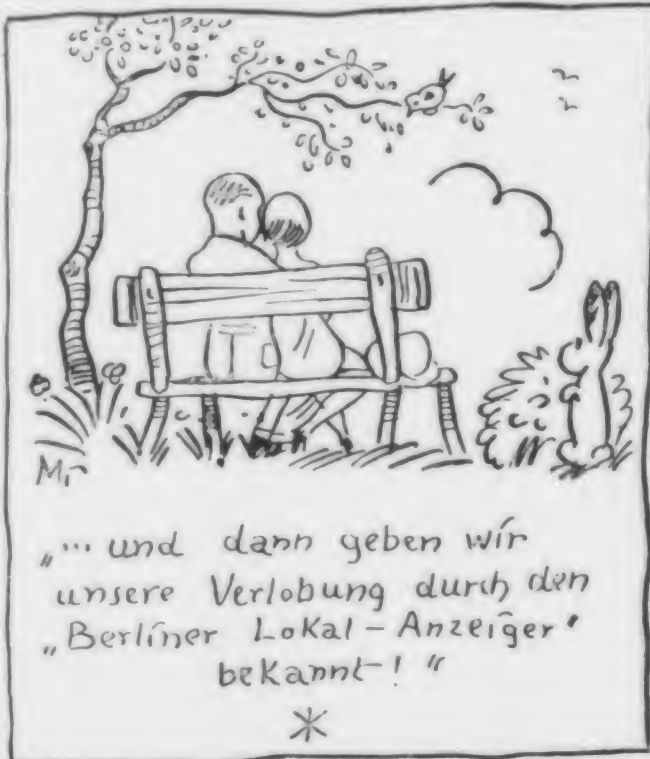 Mr
„... und dann geben wir
unsere Verlobung durch den
„Berliner Lokal-Anzeiger"
bekannt-!"